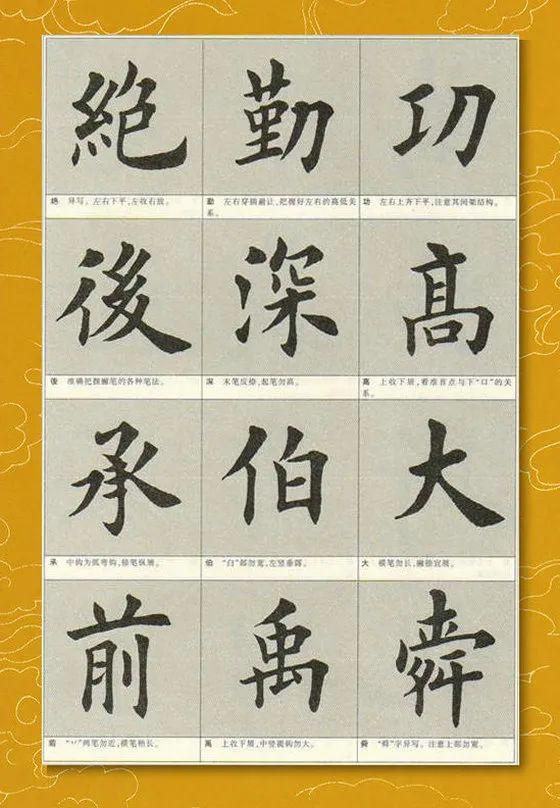 功
功 左右上齐下平,注意其间架结构。
高
高 上收下展,看准首点与下“口”的关
系。
大
大 横笔勿长,撇捺宜展。
舜
舜 “舜”字异写。注意上部勿宽。
勤
勤 左右穿插避让,把握好左右的高低关
系。
深
深 末笔反捺,起笔勿高。
伯
伯 “白”部勿宽,左竖垂露。
禹
禹 上收下展,中竖圆钩勿大。
絶
绝 异写。左右下平,左收右放。
後
後 准确把握撇笔的各种笔法。
承
承 中钩为弧弯钩,捺笔纵展。
前
前 “丷”两笔勿近,横笔稍长。